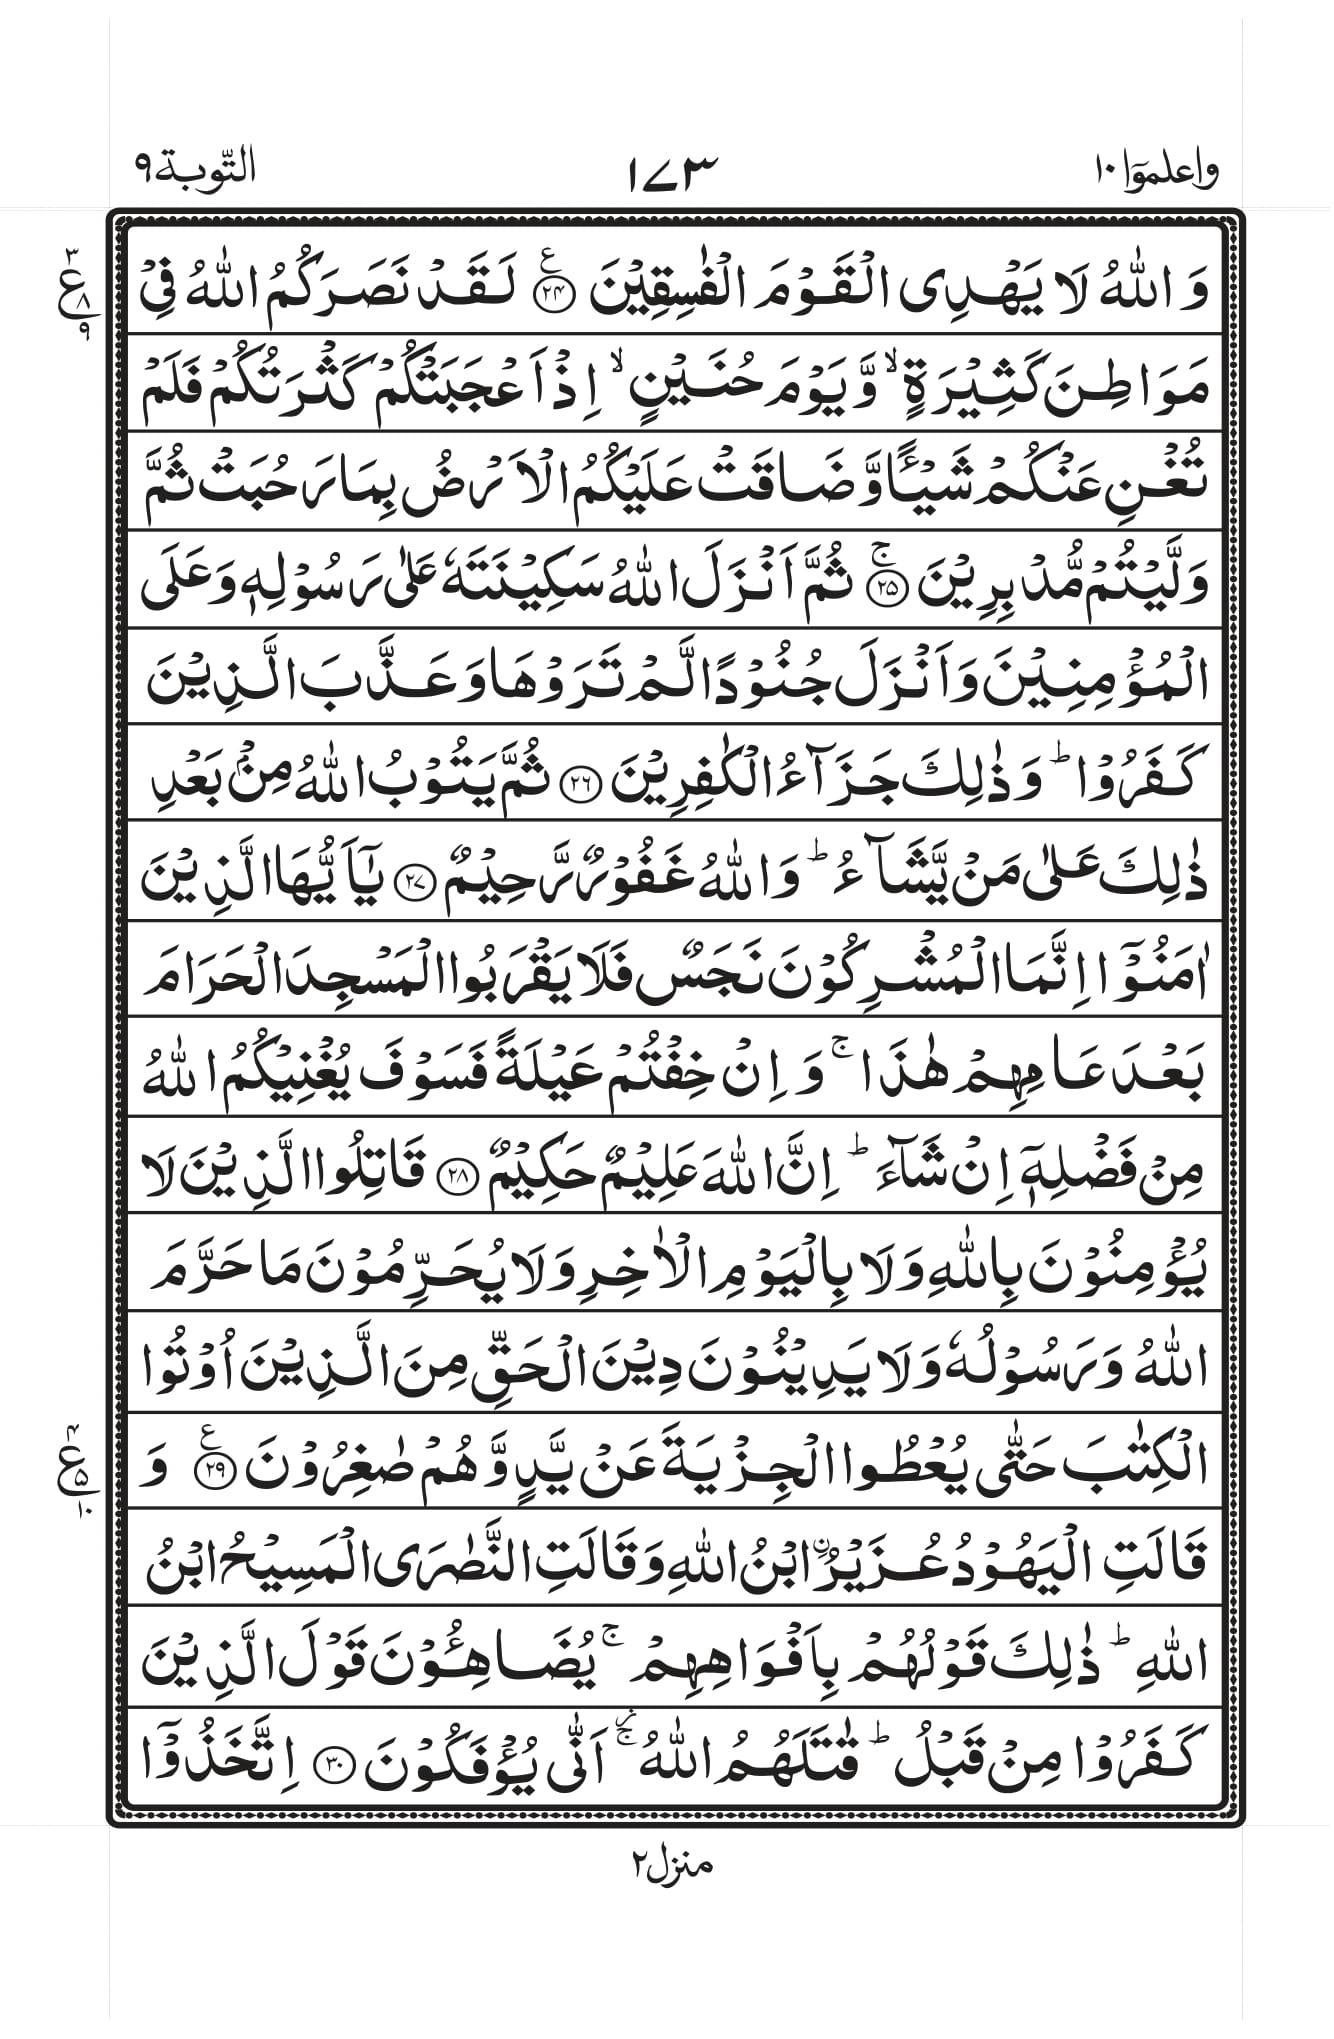 واعلموٓا ١٠
١٧٣
التّوبة ٩
وَ اللّٰهُ لَا يَهْدِى الْقَوْمَ الْفٰسِقِيْنَ ﴿٢٤﴾ ع لَقَدْ نَصَرَكُمُ اللّٰهُ فِىْ
٣ ع ٨ ٩
مَوَاطِنَ كَثِيْرَةٍ ۙ وَّ يَوْمَ حُنَيْنٍ ۙ اِذْ اَعْجَبَتْكُمْ كَثْرَتُكُمْ فَلَمْ
تُغْنِ عَنْكُمْ شَيْـًٔا وَّ ضَاقَتْ عَلَيْكُمُ الْاَرْضُ بِمَا رَحُبَتْ ثُمَّ
وَلَّيْتُمْ مُّدْبِرِيْنَ ﴿٢٥﴾ ۚ ثُمَّ اَنْزَلَ اللّٰهُ سَكِيْنَتَهٗ عَلٰى رَسُوْلِهٖ وَ عَلَى
الْمُؤْمِنِيْنَ وَ اَنْزَلَ جُنُوْدًا لَّمْ تَرَوْهَا وَ عَذَّبَ الَّذِيْنَ
كَفَرُوْا ؕ وَ ذٰلِكَ جَزَآءُ الْكٰفِرِيْنَ ﴿٢٦﴾ ثُمَّ يَتُوْبُ اللّٰهُ مِنْۢ بَعْدِ
ذٰلِكَ عَلٰى مَنْ يَّشَآءُ ؕ وَ اللّٰهُ غَفُوْرٌ رَّحِيْمٌ ﴿٢٧﴾ يٰۤاَيُّهَا الَّذِيْنَ
اٰمَنُوْۤا اِنَّمَا الْمُشْرِكُوْنَ نَجَسٌ فَلَا يَقْرَبُوا الْمَسْجِدَ الْحَرَامَ
بَعْدَ عَامِهِمْ هٰذَا ۚ وَ اِنْ خِفْتُمْ عَيْلَةً فَسَوْفَ يُغْنِيْكُمُ اللّٰهُ
مِنْ فَضْلِهٖۤ اِنْ شَآءَ ؕ اِنَّ اللّٰهَ عَلِيْمٌ حَكِيْمٌ ﴿٢٨﴾ قَاتِلُوا الَّذِيْنَ لَا
يُؤْمِنُوْنَ بِاللّٰهِ وَ لَا بِالْيَوْمِ الْاٰخِرِ وَ لَا يُحَرِّمُوْنَ مَا حَرَّمَ
اللّٰهُ وَ رَسُوْلُهٗ وَ لَا يَدِيْنُوْنَ دِيْنَ الْحَقِّ مِنَ الَّذِيْنَ اُوْتُوا
الْكِتٰبَ حَتّٰى يُعْطُوا الْجِزْيَةَ عَنْ يَّدٍ وَّ هُمْ صٰغِرُوْنَ ﴿٢٩﴾ ع وَ
٤ ع ٥ ١٠
قَالَتِ الْيَهُوْدُ عُزَيْرُ ِۨابْنُ اللّٰهِ وَ قَالَتِ النَّصٰرَى الْمَسِيْحُ ابْنُ
اللّٰهِ ؕ ذٰلِكَ قَوْلُهُمْ بِاَفْوَاهِهِمْ ۚ يُضَاهِـُٔوْنَ قَوْلَ الَّذِيْنَ
كَفَرُوْا مِنْ قَبْلُ ؕ قٰتَلَهُمُ اللّٰهُ ۚ۫ اَنّٰى يُؤْفَكُوْنَ ﴿٣٠﴾ اِتَّخَذُوْۤا
منزل ٢